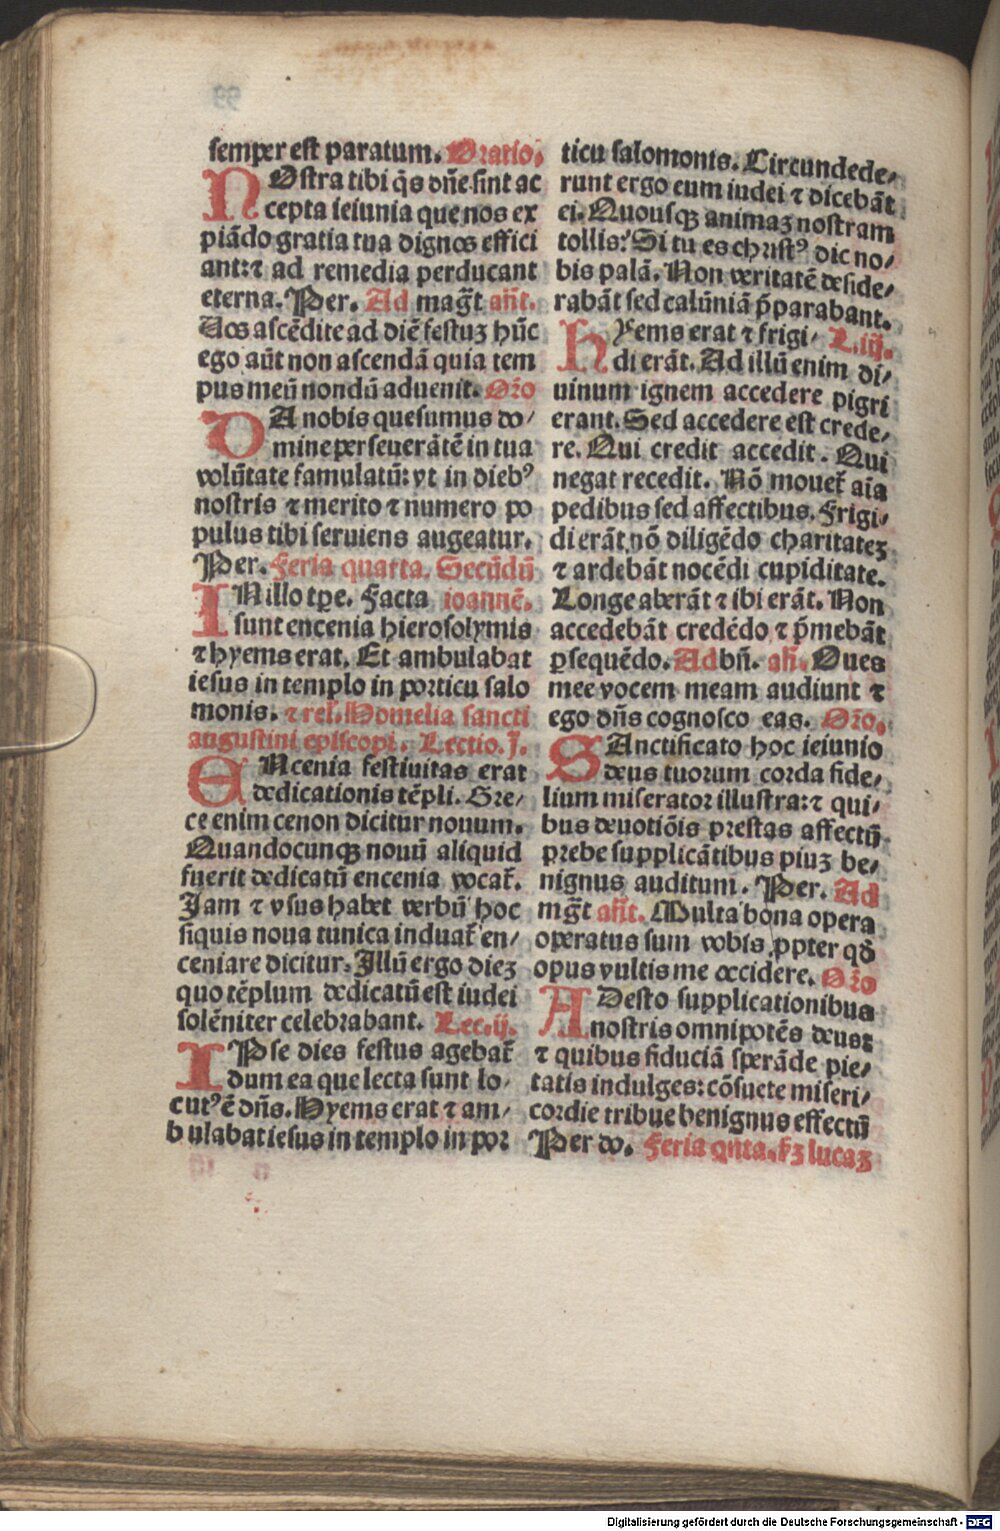 semper est paratum. Oratio.
NOstra tibi q̄s dñe sint ac
cepta ieiunia que nos ex
piādo gratia tua dignos effici
ant: ⁊ ad remedia perducant
eterna. Per. Ad mag̃t añt.
Vos ascēdite ad diē festuꝫ hūc
ego aūt non ascendā quia tem
pus meū nondū aduenit. Oro
DA nobis quesumus do/
mine perseuerātē in tua
volūtate famulatū: vt in diebꝰ
nostris ⁊ merito ⁊ numero po
pulus tibi seruiens augeatur.
Per. Feria quarta. Secūdū
INillo tp̄e. Facta ioannē.
sunt encenia hierosolymis
⁊ hyems erat. Et ambulabat
iesus in templo in porticu salo
monis. ⁊ rel. Homelia sancti
augustini episcopi. Lectio. j.
ENcenia festiuitas erat
dedicationis tēpli. Gre/
ce enim cenon dicitur nouum.
Quandocunqꝫ nouū aliquid
fuerit dedicatū encenia vocat᷑.
Jam ⁊ vsus habet verbū hoc
siquis noua tunica induat᷑ en/
ceniare dicitur. Illū ergo dieꝫ
quo tēplum dedicatū est iudei
solēniter celebrabant. Lec. ij.
IPse dies festus agebat᷑
dum ea que lecta sunt lo/
cutꝰ ē dñs. Hyems erat ⁊ am/
bulabat iesus in templo in por
ticu salomonis. Circundede/
runt ergo eum iudei ⁊ dicebāt
ei. Quousqꝫ animaꝫ nostram
tollis? Si tu es christꝰ dic no/
bis palā. Non veritatē deside/
rabāt sed calūniā p̄parabant.
HYems erat ⁊ frigi/ L. iij.
di erāt. Ad illū enim di/
uinum ignem accedere pigri
erant. Sed accedere est crede/
re. Qui credit accedit. Qui
negat recedit. Nō mouet᷑ aīa
pedibus sed affectibus. Frigi/
di erāt nō diligēdo charitateꝫ
⁊ ardebāt nocēdi cupiditate.
Longe aberāt ⁊ ibi erāt. Non
accedebāt credēdo ⁊ p̄mebāt
ꝑsequēdo. Ad bñ. añ. Oues
mee vocem meam audiunt ⁊
ego dñs cognosco eas. Oro.
SAnctificato hoc ieiunio
deus tuorum corda fide/
lium miserator illustra: ⁊ qui/
bus deuotiōis prestas affectū
prebe supplicātibus piuꝫ be/
nignus auditum. Per. Ad
mg̃t añt. Multa bona opera
operatus sum vobis ꝓpter qđ
opus vultis me occidere. Oro
ADesto supplicationibus
nostris omnipotēs deus:
⁊ quibus fiduciā sperāde pie/
tatis indulges: cōsuete miseri/
cordie tribue benignus effectū
Per do. Feria qnta. Fꝫ lucaꝫ
Digitalisierung gefördert durch die Deutsche Forschungsgemeinschaft - DFG